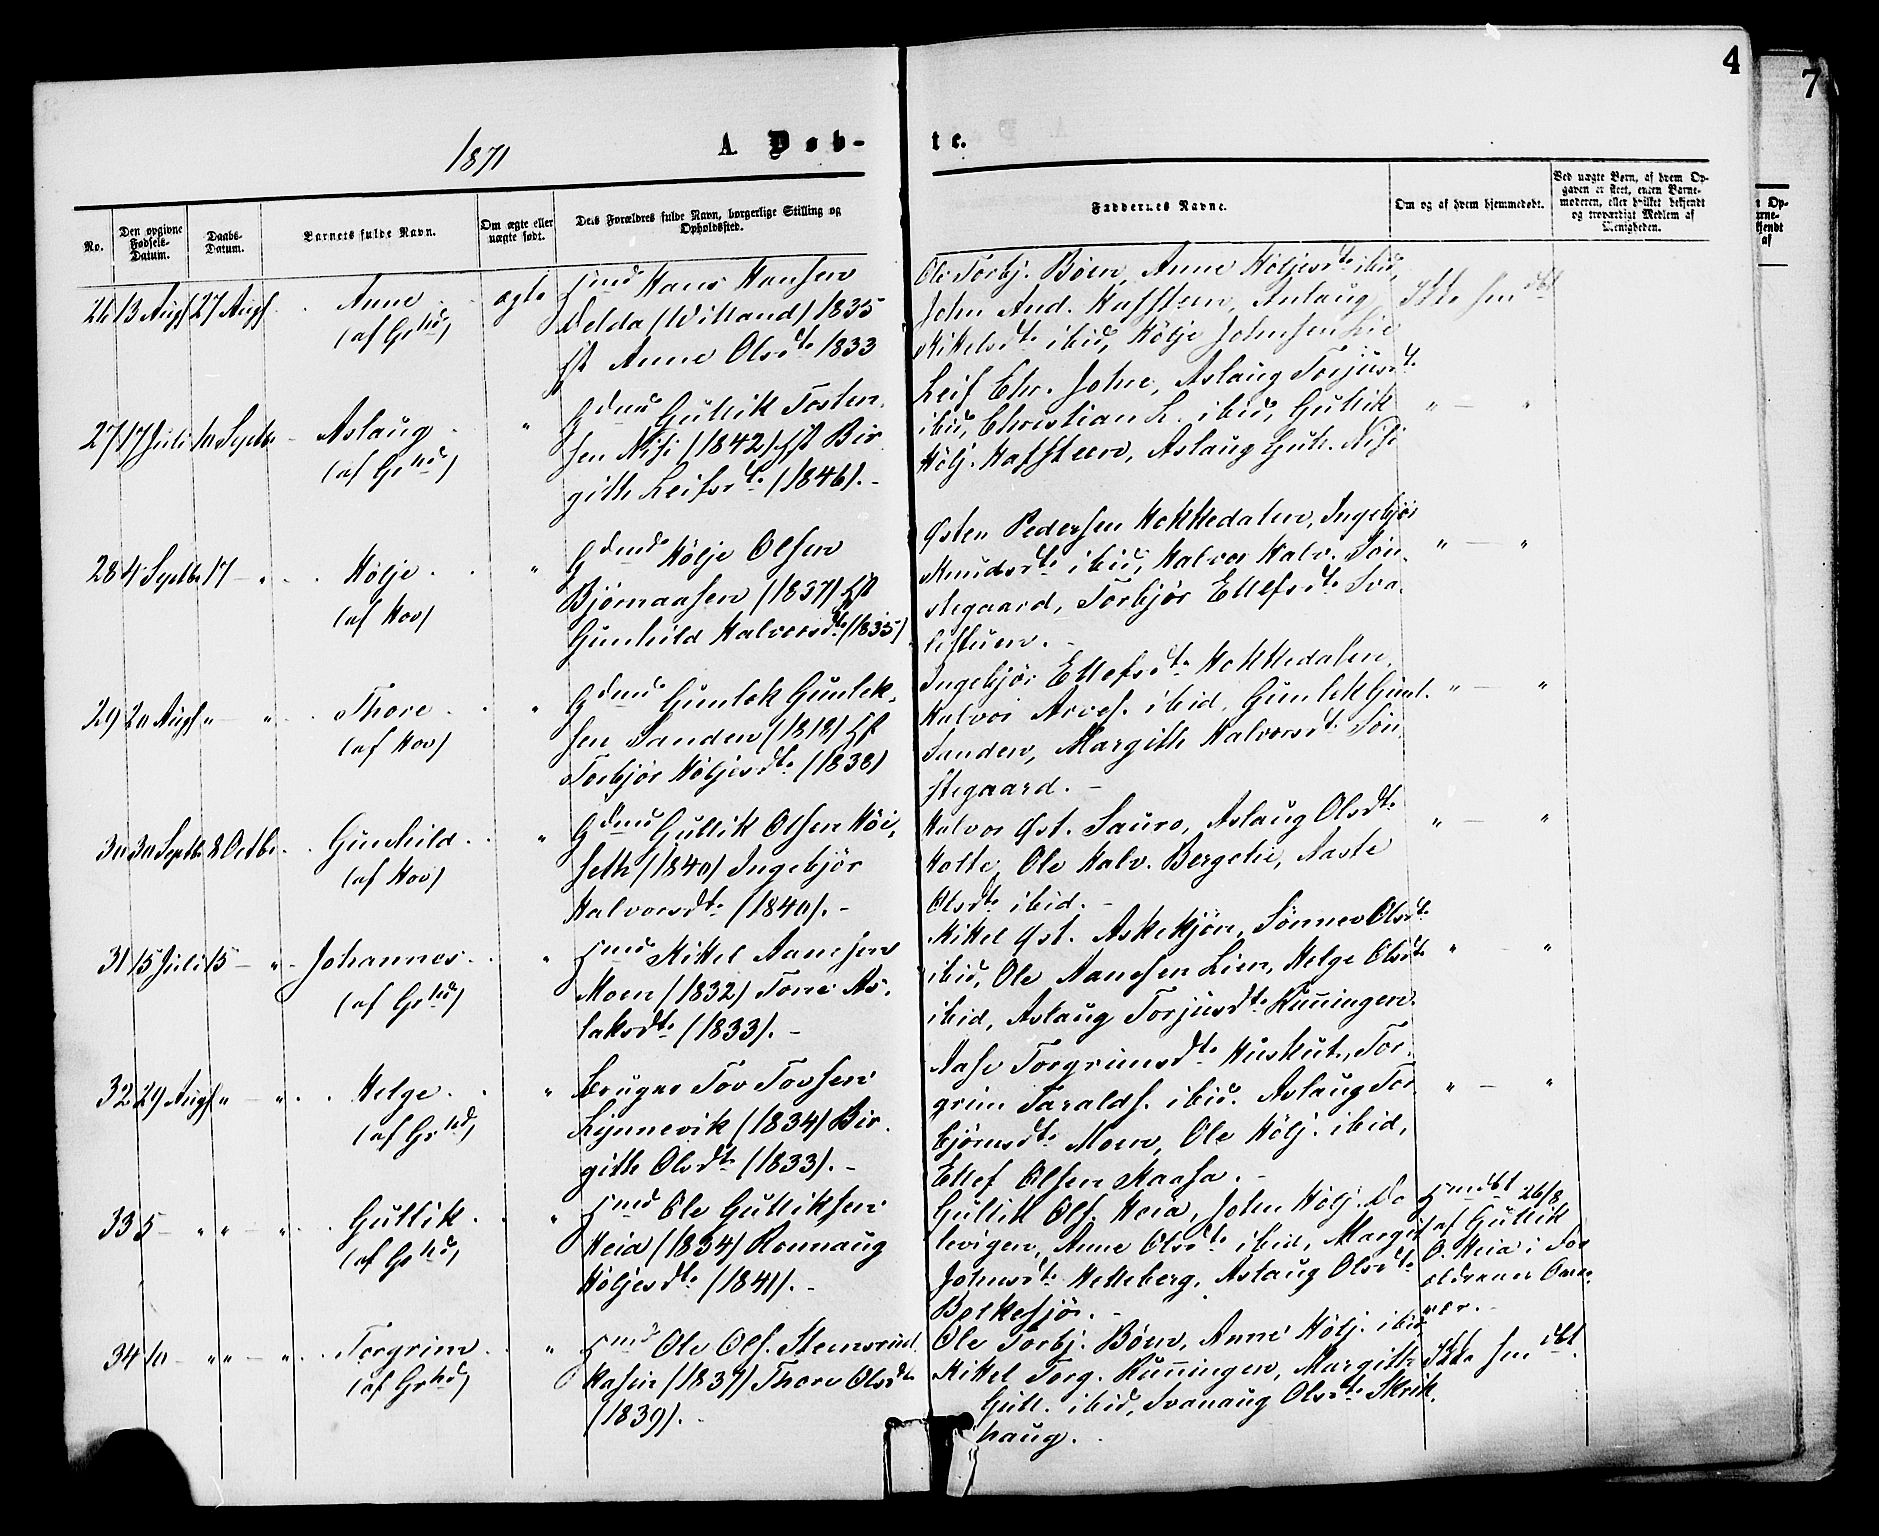 4
7
1871
A. Døb-
te.
No.
Den opgivne Fødsels-Datum.
Daabs-Datum.
Barnets fulde Navn.
Om ægte eller uægte født.
Dets Forældres fulde Navn, borgerlige Stilling og Opholdssted.
Faddernes Navne.
Om og af hvem hjemmedøbt.
Ved uægte Børn, af hvem Opgaven er skeet, enten Barnemoderen, eller hvilket bekjendt og troværdigt Medlem af Menigheden.
26 13 Augs 27 Augs Anne ægte Hans Hansen
(af Grhd) (Villand) 1835
Anne Olsdt. 1833
Ole Torbj. Bøen, Anne Höljesdt. ibid,
John And. Haffteen, Aslaug
Mikelsdt. ibid, Hölje Johnsen Lie
Ikke hmdbt
27 17 Juli 10 Septbr Aslaug " Gdmd Gullik Tosten-
(af Grhd) sen Nisi (1842) Hst Bir-
gith Leifsdt. (1846). -
Leif Chr. Johre, Aslaug Torjusdt.
ibid, Christian L. ibid, Gullik
Hölj. Haffteen, Aslaug Gull. Nisi
" — "
28 4 Septbr 17 — " Hölje " Gdmd Hölje Olsen
(af Hov) Bjørnaasen (1837) Hst
Gunhild Halvorsdt. (1835)
Østen Pedersen Hokkedalen, Ingebjør
Knudsdt. ibid, Halvor Halv. Søn-
stegaard, Torbjør Ellefsdt. Sva-
listuen. -
" — "
29 20 Augs " — " Thore " Gdmd Gunlek Gunlek-
(af Hov) sen Sanden (1818) Hst
Torbjør Höljesdt. (1838)
Ingebjør Ellefsdt. Hokkedalen,
Halvor Arves. ibid, Gunlek Gunl.
Sanden, Margith Halvorsdt. Søn-
stegaard. -
" — "
30 30 Septbr 8 Octbr Gunhild " Gdmd Gullik Olsen Höi-
(af Hov) seth (1840) Ingebjør
Halvorsdt. (1840). -
Halvor Øst. Sauro, Aslaug Olsdt.
Holte, Ole Halv. Bergelie, Aaste
Olsdt. ibid. -
" — "
31 15 Juli 15 — " Johannes " Mikkel Aanesen
(af Grhd) Moen (1832) Tone As-
laksdt. (1833). -
Mikel Øst. Askekjøn, Sønnev Olsdt.
ibid, Ole Aanesen Lien, Helge Olsdt.
ibid, Aslaug Torjusdt. Runningen
" — "
32 29 Augs " — " Helge " Bruger Tov Tovsen
(af Grhd) Lynnevik (1834) Bir-
gith Olsdt. (1833). -
Aase Torgrimsdt. Huskut., Tor-
grim Taralds. ibid. Aslaug Tor-
bjørnsdt. Moen, Ole Hölj. ibid,
Ellef Olsen Kaasa. -
" — "
33 5 — " " — " Gullik " Ole Gulliksen
(af Grhd) Heia (1834) Ronnaug
Höljesdt. (1841). -
Gullik Ols. Heia, John Hölj. Bo-
levigen, Anne Olsdt. ibid, Margit
Johnsdt. Helleberg, Aslaug Olsdt.
Bolkesjø. -
hmdbt 26/8
af Gullik
O. Heia i For-
ældrenes Over-
vær. -
34 10 — " " — " Torgrim " Ole Ols. Stensrud
(af Grhd) (1837) Thore Olsdt
(1839). -
Ole Torbj. Bøen, Anne Hölj. ibid,
Mikel Torg. Runningen, Margith
Gull. ibid, Svanaug Olsdt. Skrik-
haug. -
Ikke hmdbt.